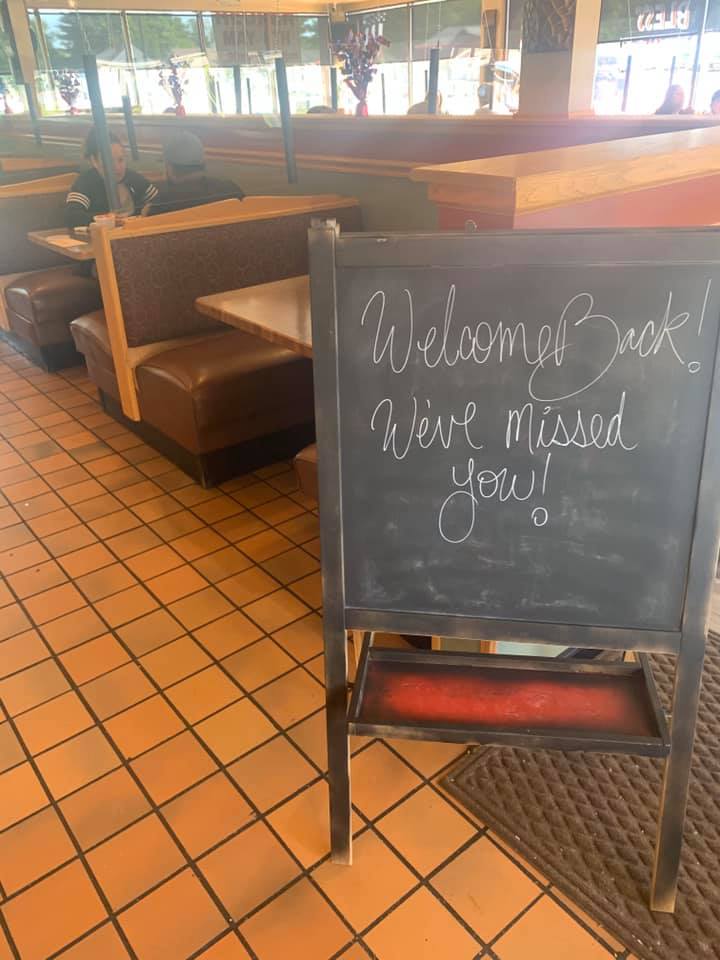 BLESS
Welcome Back!
We've missed
you!